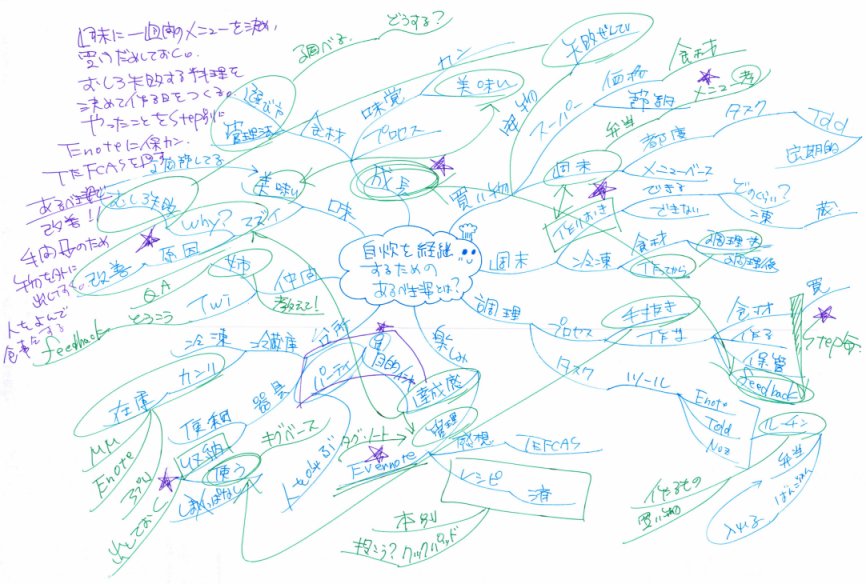 週末に一週間のメニューを決め、
買いだめしておく。
むしろ失敗する料理を
決めて作る日をつくる。
やったことをStep毎に
Enoteに保カン。
TEFCASを回す
あるべき姿で
改善!!
手間のため
物を外に
出しておく。
人をよんで
食事会する
どうする?
調べる
管理法
食材
味覚
カン
プロセス
美味い
成長
失敗ぜんてい
買い物
スーパー
価格
食材
メニュー考
弁当
都度
タスク
Tdd
定期的
週末
メニューベース
できる
できない
どのくらい?
冷凍
蔵
作りおき
美味い
味
マズイ
むしろ失敗
Why?
原因
改善
自炊を継続
するための
あるべき姿とは?
週末
冷凍
食材
作ってから
調理前
調理後
姉
仲間
教えて!
QA
Twi
とうこう
feedback
調理
プロセス
手抜き
作業
食材
買
作る
保管
feedback
Step毎
タスク
ツール
Enote
Tdd
Noz
ルーチン
弁当
ばんごはん
入れる
作るもの
買い物
台所
冷蔵庫
冷凍
カンリ
在庫
MM
Enote
器具
便利
収納
使う
しまいっぱなし
出しておく
パーティ
目的
人をよぶ
楽しみ
達成感
管理
タグ・ノート
Evernote
感想
TEFCAS
レシピ
済
本
クックパッド